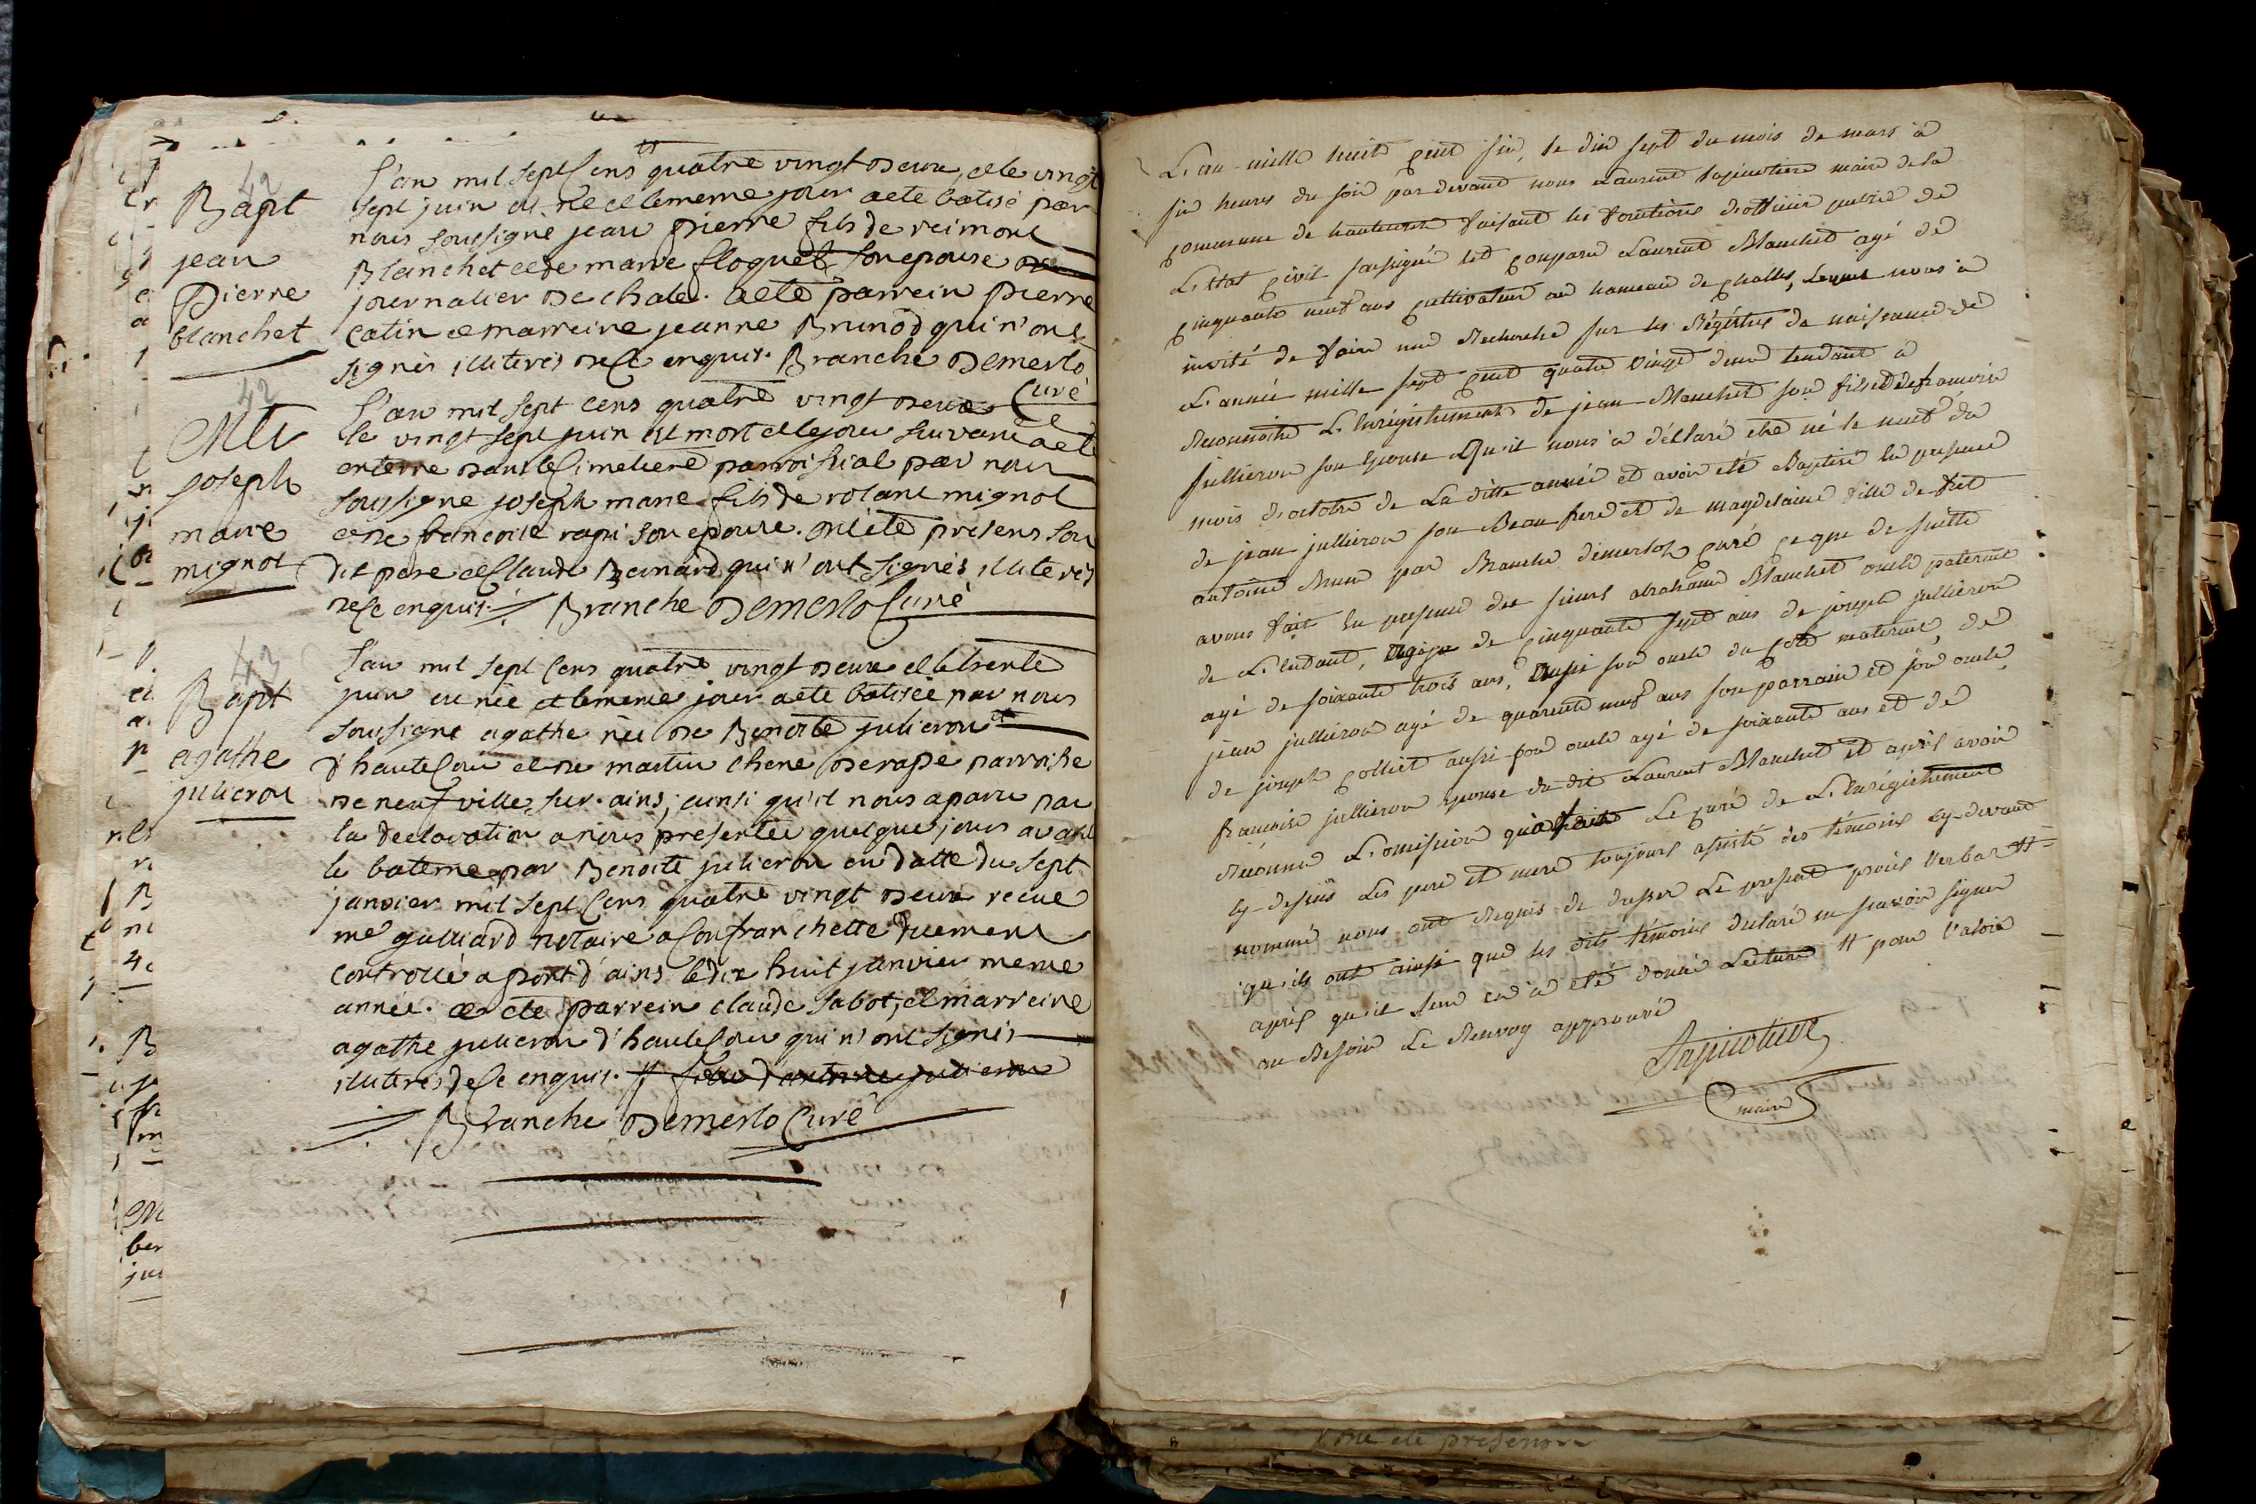 42
Bapt
jean
Pierre
blanchet
L'an mil sept Cens quatre vingt deux, et le vingt
sept juin est né et le meme jour a eté batisé par
nous soussigne jean pierre fils de reimont
Blanchet et de marie floquet son epouse
journalier de chale. a eté parrein pierre
catin et marreine jeanne Brunod qui n'ont
signés illiteres de ce enquis. Branche Demerlo
Curé
42
Mti
joseph
marie
mignot
L'an mil sept cens quatre vingt deux et
le vingt sept juin est mort et le jour suivant a eté
enterre dans le Cimetiere parroissial par nous
soussigne joseph marie fils de rolant mignot
et de francoise rapi son epouse. ont été presens son
dit pere et Claude Bernard qui n'ont signés illiterés
de ce enquis. Branche Demerlo Curé
43
Bapt
agathe
julieron
L'an mil sept Cens quatre vingt deux et le trente
juin est née et le meme jour a eté batisée par nous
soussigne agathe née de Benoite julieron
d'hautecour et de martin chene de rape parroisse
de neufville sur ains; ainsi qu'il nous a paru par
la declaration a nous presentée quelque jours avant
le bateme par Benoite julieron en datte du sept
janvier mil sept Cens quatre vingt deux recue
me guillard notaire a Confranchette duement
controllé a pont d'ains le dix huit janvier meme
année. a eté parrein claude sabot, et marreine
agathe julieron d'hautecour qui n'ont signés
illiterés de ce enquis.
Branche Demerlo Curé
L'an mille huit cent six, le dix sept du mois de mars à
six heures du soir par devant nous Laurent mairie de la
commune de hautecour faisant les fonctions d'officier public de
L'Etat civil soussigné est comparu Laurent Blanchet agé de
cinquante neuf ans cultivateur au hameau de challes, Lequel nous a
invité de faire une Recherche sur les Régistres de naissance de
L'année mille sept cent quatre vingt deux tendante à
Reconnoitre L'Enrégistrement de jean Blanchet son fils et de francoise
jullieron son Epouse Qu'il nous a déclaré etre né le neuf du
mois d'octobre de La ditte année et avoir eté Baptisé En presence
de jean jullieron son Beau frere et de magdelaine fille de feu
antoine Brun par Branche demerloz curé ce que de suitte
avons fait En presence des sieurs abraham Blanchet oncle paternel
de L'Enfant, agé de cinquante sept ans de joseph jullieron
agé de soixante trois ans, aussi son oncle du coté maternel, de
jean jullieron agé de quarente neuf ans son parrain et son oncle,
de joseph colliet aussi son oncle agé de soixante ans et de
francoise jullieron Epouse du dit Laurent Blanchet et après avoir
Reconnu L'omission qu'a faite Le curé de L'Enrégistrement
cy-dessus Les pere et mere toujours assisté des témoins cy-devant
nommé nous ont Requis de dresser Le present procès Verbal
qu'ils ont ainsi que les dits témoins declaré ne scavoir signer
après qu'il leur en a eté donné Lecture pour Valoir
au Besoin Le Renvoy approuvé
maire
ont eté presens